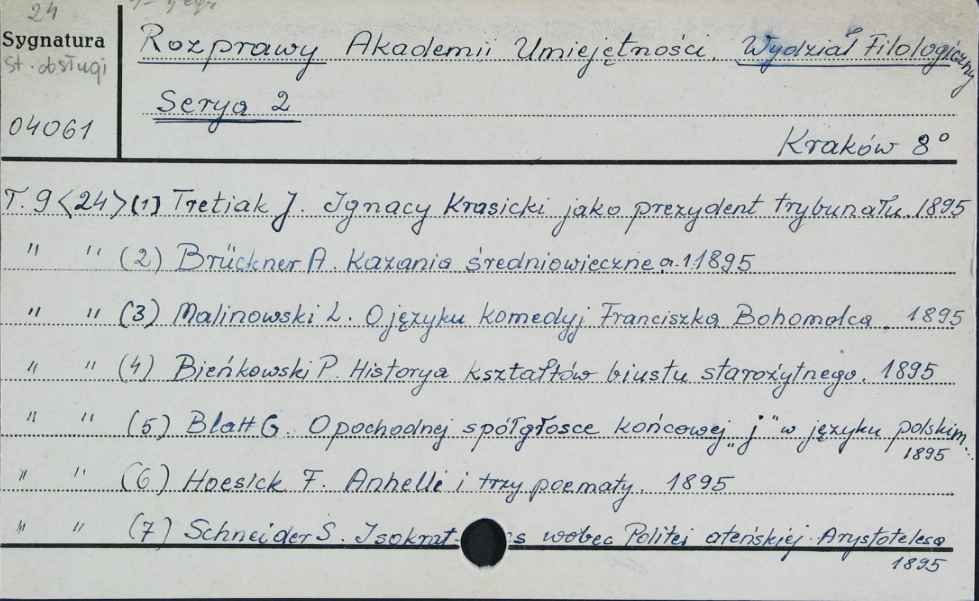 24
Sygnatura
st. obsługi
04061
Rozprawy Akademii Umiejętności. Wydział Filologiczny
Serya 2
Kraków 8°
T. 9 <24> (1) Tretiak J. Ignacy Krasicki jako prezydent trybunału. 1895
" " (2) Brückner A. Kazania średniowieczne 1895
" " (3) Malinowski L. O języku komedyj Franciszka Bohomolca. 1895
" " (4) Bieńkowski P. Historya kształtów biustu starożytnego. 1895
" " (5) Blatt G. O pochodnej spółgłosce końcowej „j" w języku polskim.
1895
" " (6) Hoesick F. Anhelli i trzy poematy. 1895
" " (7) Schneider S. wobec Politei ateńskiej Arystotelesa
1895